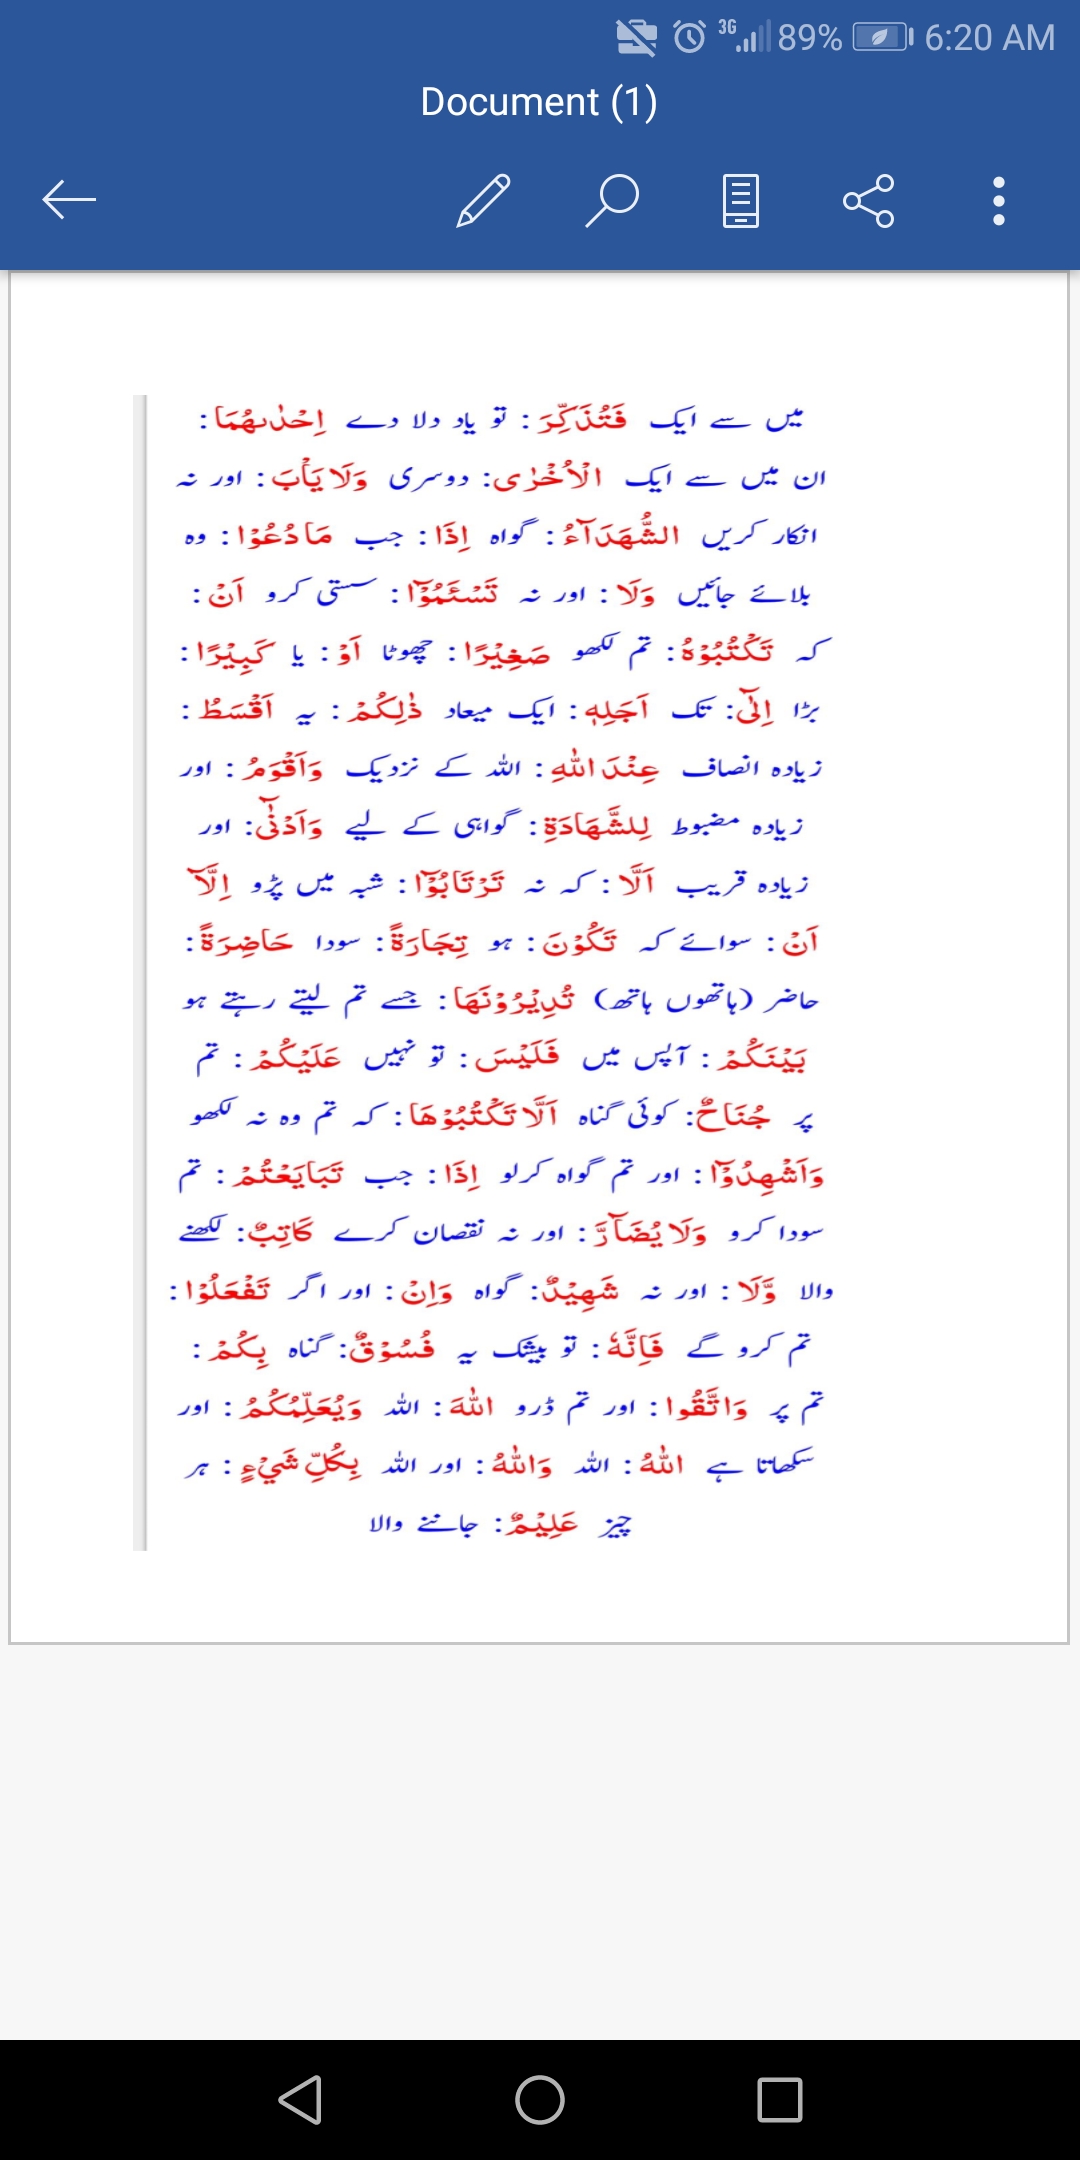 3G 89% 6:20 AM
Document (1)
میں سے ایک فَتُذَكِّرَ : تو یاد دلا دے اِحْدٰىهُمَا :
ان میں سے ایک الْاُخْرٰى: دوسری وَلَا يَاْبَ: اور نہ
انکار کریں الشُّهَدَآءُ : گواہ اِذَا : جب مَا دُعُوْا : وہ
بلائے جائیں وَلَا : اور نہ تَسْـَٔمُوْٓا : سستی کرو اَنْ :
کہ تَكْتُبُوْهُ : تم لکھو صَغِيْرًا : چھوٹا اَوْ : یا كَبِيْرًا :
بڑا اِلٰٓى: تک اَجَلِهٖ : ایک میعاد ذٰلِكُمْ : یہ اَقْسَطُ :
زیادہ انصاف عِنْدَ اللّٰهِ : اللہ کے نزدیک وَاَقْوَمُ : اور
زیادہ مضبوط لِلشَّهَادَةِ : گواہی کے لیے وَاَدْنٰٓى: اور
زیادہ قریب اَلَّا : کہ نہ تَرْتَابُوْٓا : شبہ میں پڑو اِلَّآ
اَنْ : سوائے کہ تَكُوْنَ : ہو تِجَارَةً: سودا حَاضِرَةً :
حاضر (ہاتھوں ہاتھ) تُدِيْرُوْنَهَا : جسے تم لیتے رہتے ہو
بَيْنَكُمْ : آپس میں فَلَيْسَ : تو نہیں عَلَيْكُمْ : تم
پر جُنَاحٌ: کوئی گناہ اَلَّا تَكْتُبُوْهَا : کہ تم وہ نہ لکھو
وَاَشْهِدُوْٓا : اور تم گواہ کرلو اِذَا : جب تَبَايَعْتُمْ : تم
سودا کرو وَلَا يُضَآرَّ : اور نہ نقصان کرے كَاتِبٌ: لکھنے
والا وَّلَا : اور نہ شَهِيْدٌ: گواہ وَاِنْ : اور اگر تَفْعَلُوْا :
تم کرو گے فَاِنَّهٗ : تو بیشک یہ فُسُوْقٌ: گناہ بِكُمْ :
تم پر وَاتَّقُوا : اور تم ڈرو اللّٰهَ : اللہ وَيُعَلِّمُكُمُ : اور
سکھاتا ہے اللّٰهُ : اللہ وَاللّٰهُ : اور اللہ بِكُلِّ شَيْءٍ : ہر
چیز عَلِيْمٌ : جاننے والا